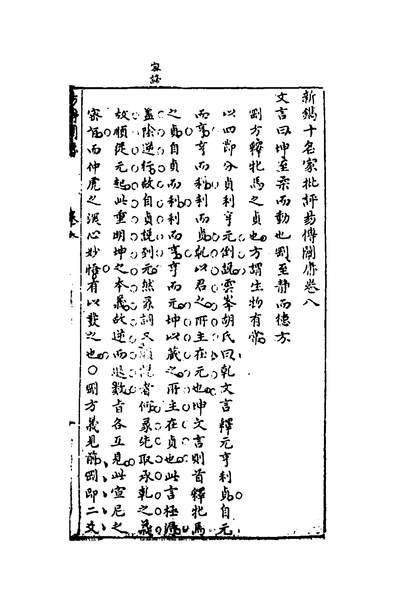 密語
新鐫十名家批評易傳闡庸卷八
文言曰坤至柔而動也剛至靜而德方
剛方釋牝馬之貞也方謂生物有常
以四節分貞利亨元倒說雲峯胡氏曰乾文言釋元亨利貞自元
而亨亨而利利而貞乾以君之所主在元也坤文言則首釋牝馬
之貞自貞而利利而亨亨而元坤以藏之所主在貞也此言極
蓋陰逆行故自貞說到元然彖詞又 者何彖先取承乾之義
故順從元起此重明坤之本義故逆而退數旨各互見此宣尼之
密 而仲虎之深心妙悟有以發之也○剛方義見前剛即二爻
易傳闡庸 卷八